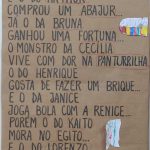 E O DO ARTHUR
COMPROU UM ABAJUR...
JÁ O DA BRUNA
GANHOU UMA FORTUNA...
O MONSTRO DA CECÍLIA
VIVE COM DOR NA PANTURRILHA
O DO HENRIQUE
GOSTA DE FAZER UM BRIQUE...
E O DA JANICE
JOGA BOLA COM A RENICE...
PORÉM O DO KAITO
MORA NO EGITO...
E O DO LORENZO